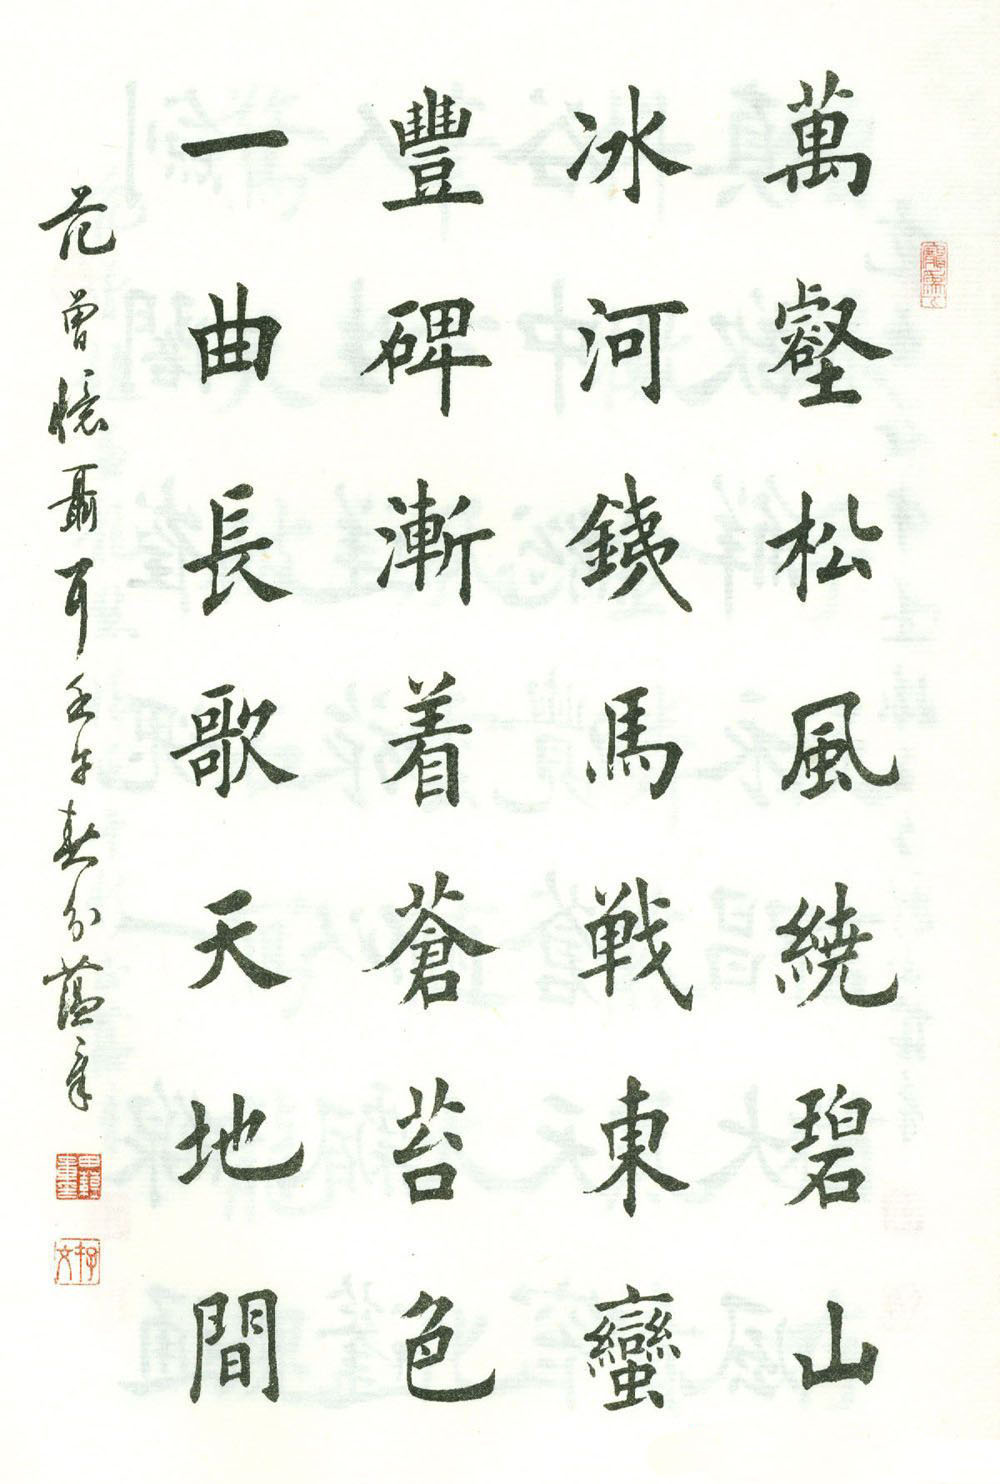 萬壑松風繞碧山
冰河銕馬戰東蠻
豐碑漸着蒼苔色
一曲長歌天地間
范曾憶聶耳壬午春分蘊章